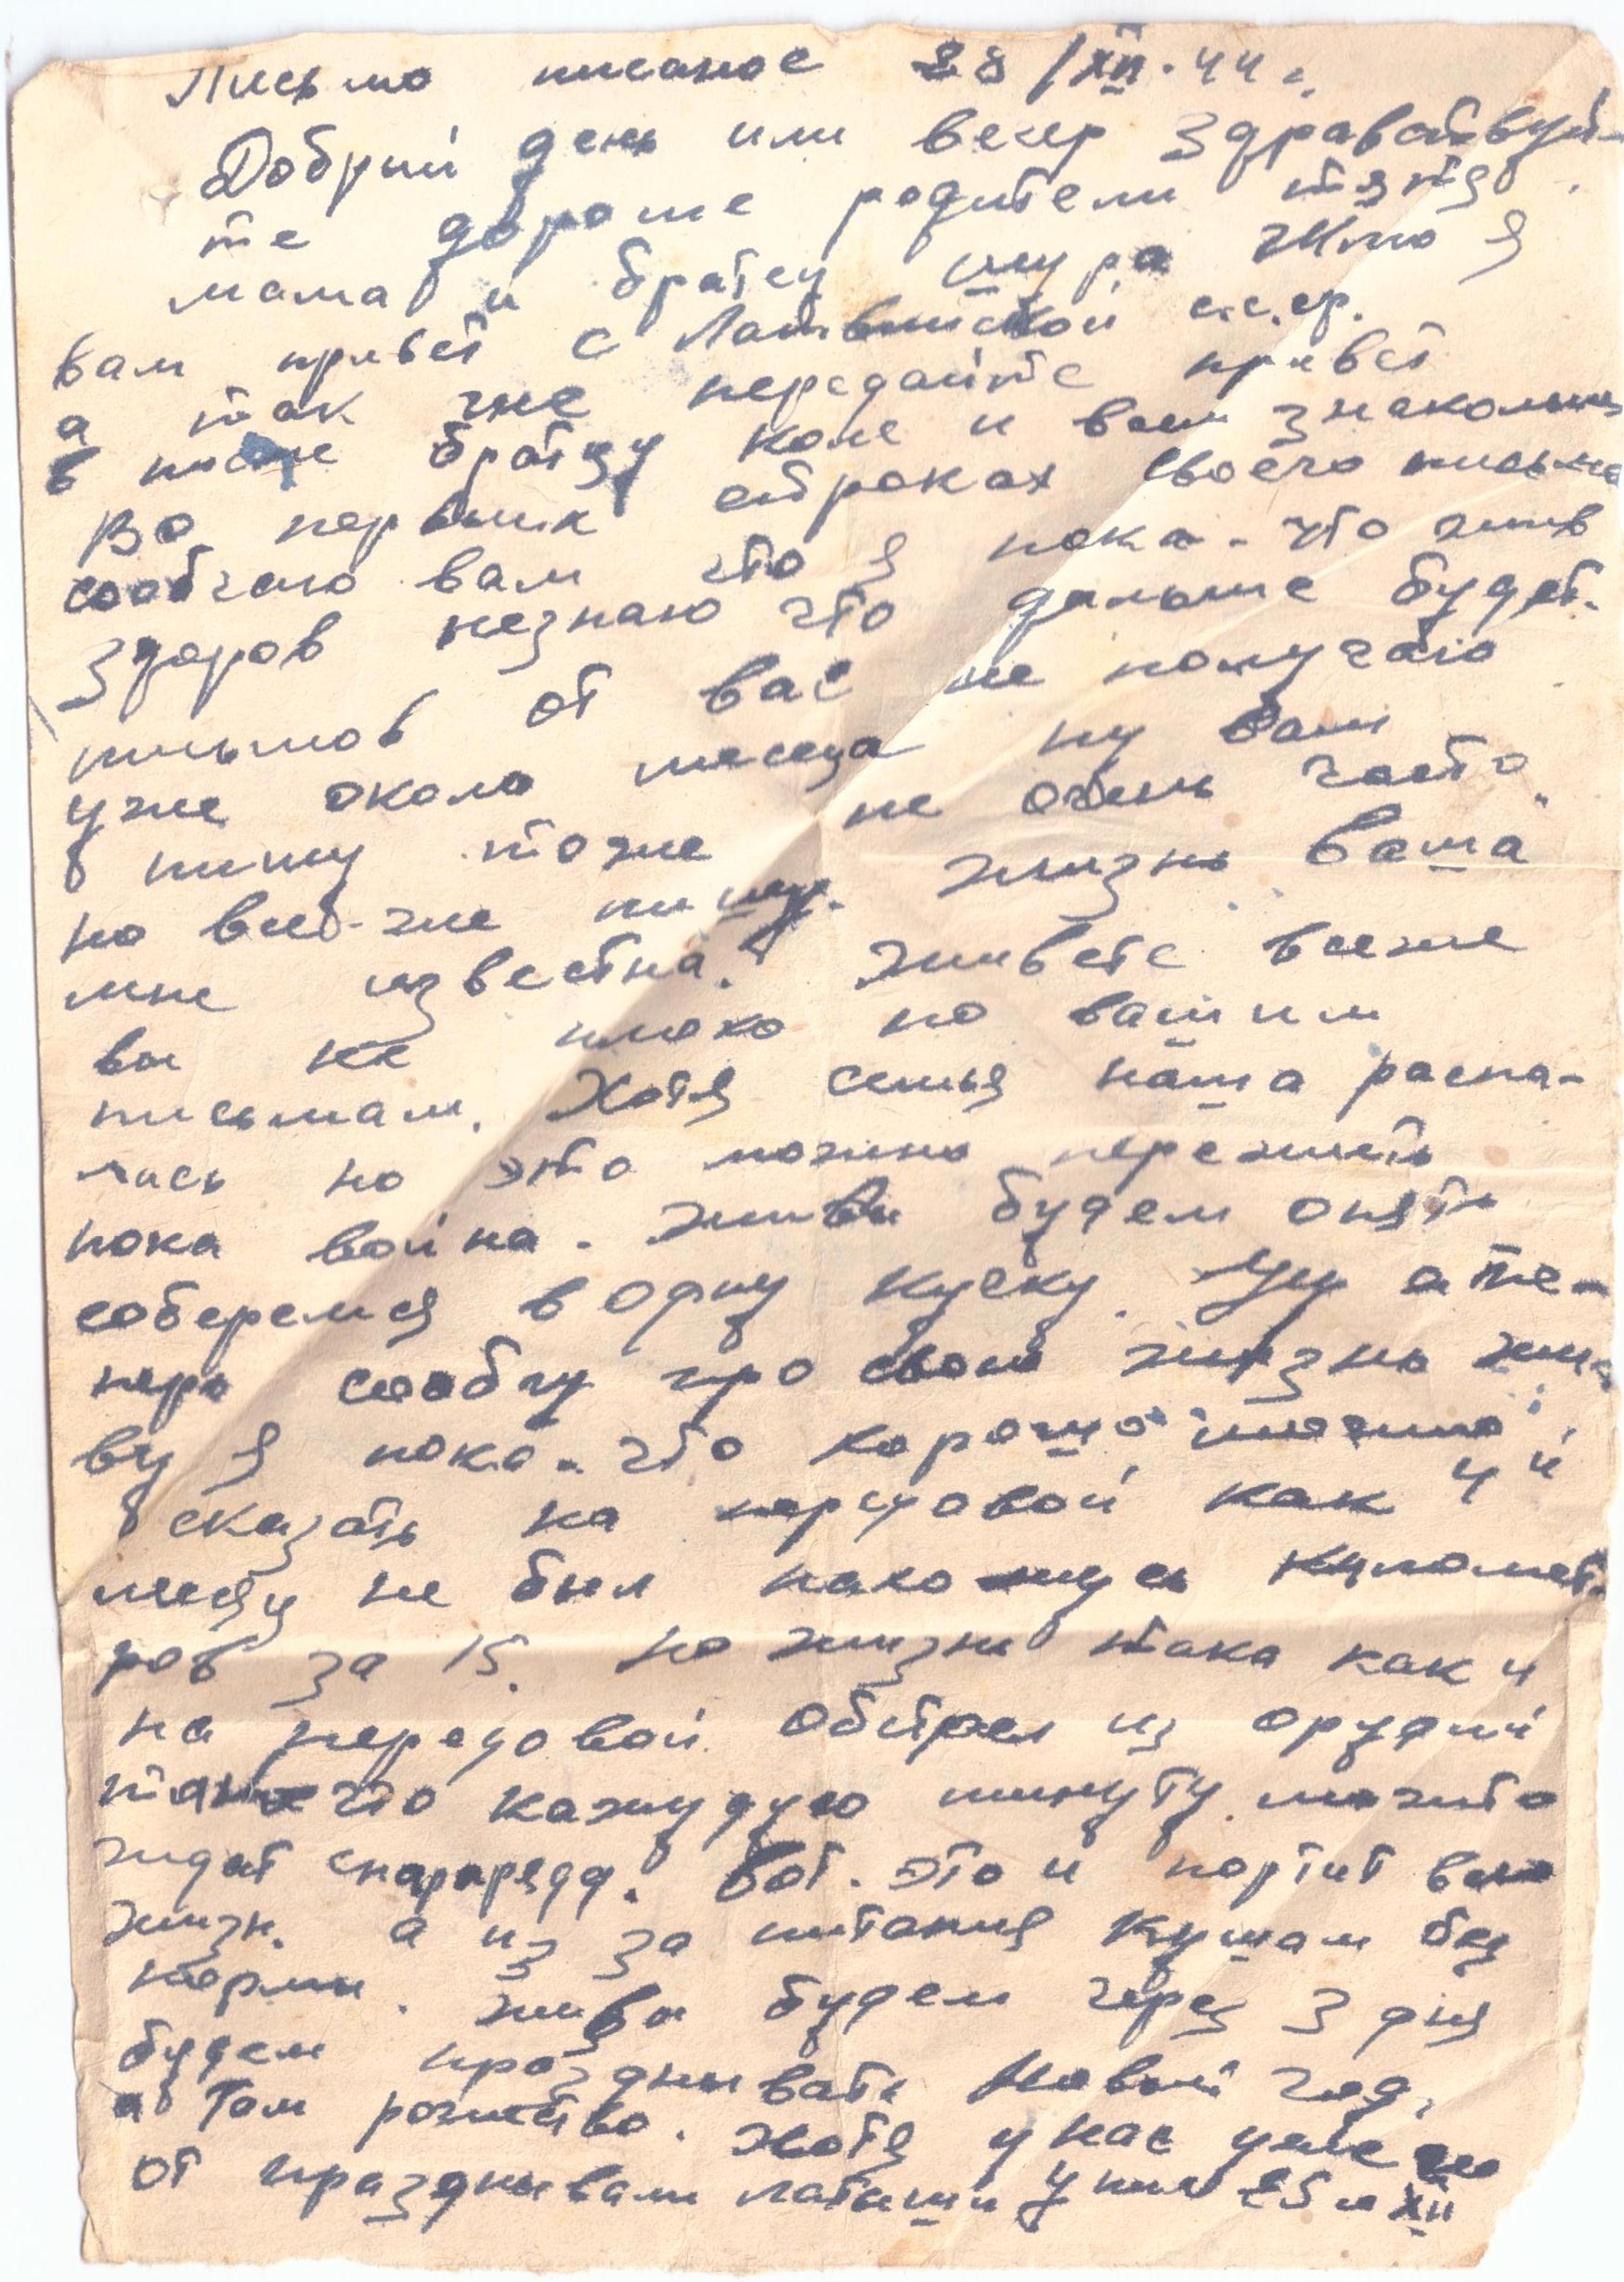 Письмо писаное 28/XII.44 г.
Добрый день или вечер здравствуй-
те дороше родители тятя
мама и братец шура Жмо я
вам привет с Латвийской с.с.ср.
а так же передайте привет
в письме братцу коле и всем знакомым
Во первых строках своего письма
сообчаю вам что я пока-что жив
здоров незнаю что дальше будет.
письмов от вас не получаю
уже около месеца ну вам
пишу тоже не очень часто
но всё-же пишу. жизнь ваша
мне известна. живете всеже
вы не плохо по вашим
письмам. Хотя семья наша распа-
лась но это можно пережить
пока война. живы будем опять
соберемся в одну кучку. Ну а те-
перь сообчу про свою жизнь жи-
ву я пока-что хорошо можно
сказать на передовой как 4й
месяц не был нахожусь километ-
ров за 15. но жизнь така как и
на передовой обстрел из орудий
так что кажудую минуту можно
ждат снарряда. Вот. это и портит всю
жизн. а из за питания кушам без
нормы. живы будем через 3 дня
будем празднывать Новый год,
а там рожество. хотя у нас уже
от празднывали латыши у них 25го XII